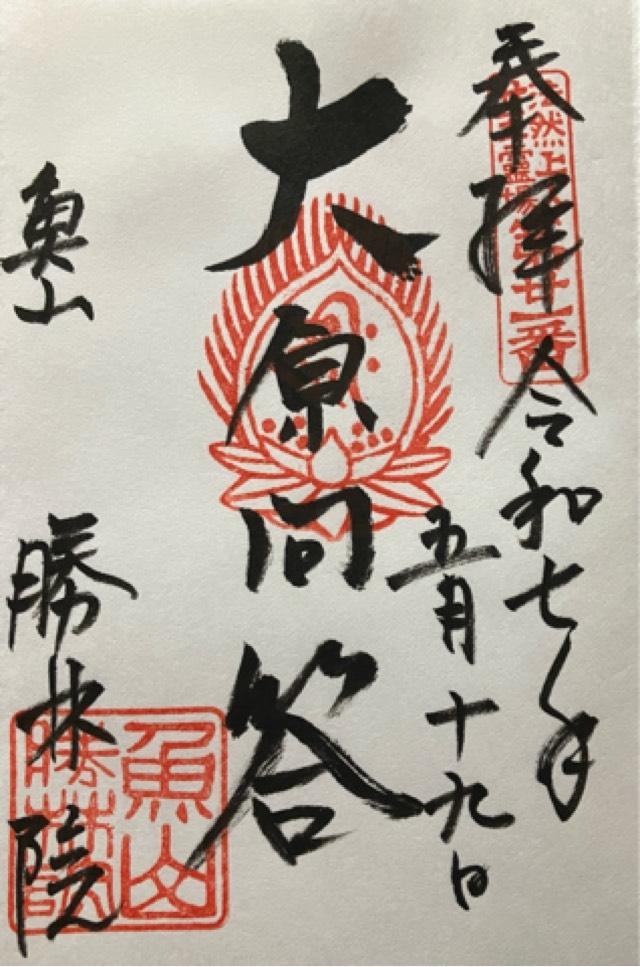 奉拝
法然上人
霊場第廿一番
令和七年
五月十九日
大原問答
魚山
勝林院
魚山
勝林院